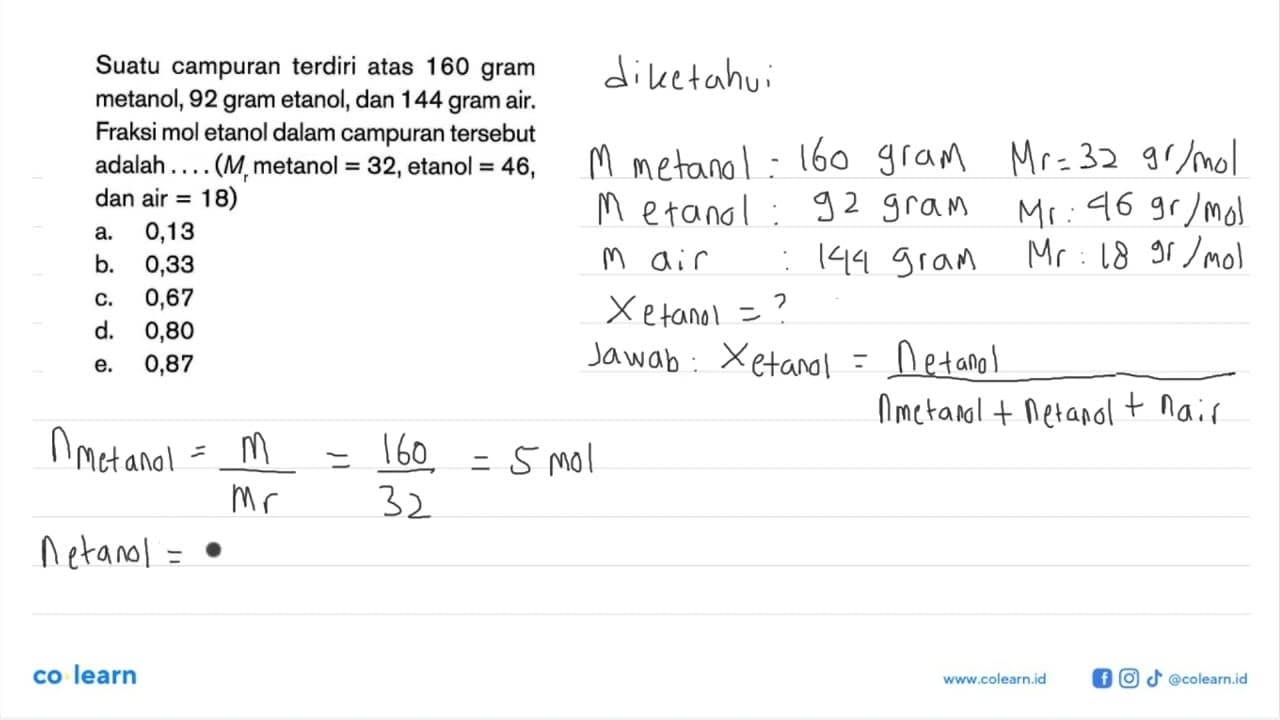 Suatu campuran terdiri atas 160 gram
metanol, 92 gram etanol, dan 144 gram air.
Fraksi mol etanol dalam campuran tersebut
adalah .... (Mr metanol = 32, etanol = 46,
dan air = 18)
a. 0,13
b. 0,33
c. 0,67
d. 0,80
e. 0,87
diketahui
m metanol : 160 gram Mr = 32 gr/mol
m etanol : 92 gram Mr : 46 gr/mol
m air : 144 gram Mr : 18 gr/mol
X etanol = ?
Jawab : X etanol = n etanol / n metanol + n etanol + n air
n metanol = m / Mr = 160 / 32 = 5 mol
n etanol =
co learn
www.colearn.id
@colearn.id